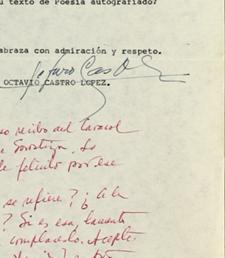 u texto de Poesía autografiado?
abraza con admiración y respeto.
OCTAVIO CASTRO LOPEZ.
recibo del Caracol
le felicito por ese
se refiere? ¿ a la
? Si es esa, lamento
complacerlo. Acepte